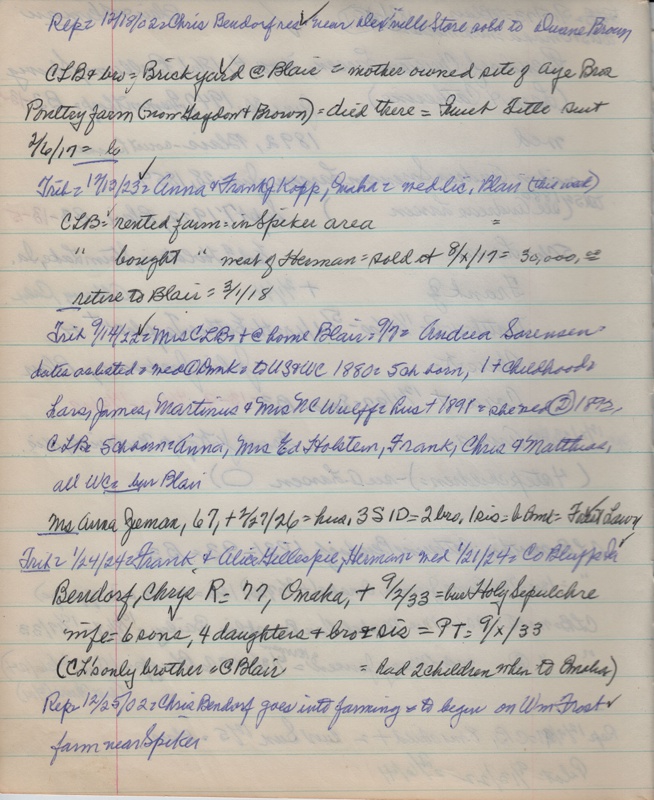 Rep = 12/18/02 = Chris Bendorf res near Dex'ville Store sold to Duane Brown
CLB & bro = Brickyard @ Blair = mother owned site of Aye Bros
Poultry farm (now Haydon & Brown) = died there = Quiet Title suit
2/6/17 = b
Trib = 12/19/23 = Anna & Frank J Kopp, Omaha = med lic, Blair (this week)
CLB = rented farm = in Spiker area =
" bought " west of Herman = sold it 8/x/17 = 30,000,00
retire to Blair = 3/1/18
Trib 9/14/22 = Mrs CLB = + @ home Blair = 9/7 = Andrea Sorensen =
dates as listed = med ① Dmk = to US & WC 1880 = 5 ch born, 1 + childhood =
Lars, James, Martinus & Mrs NC Wulff = hus + 1891 = she med ② 1892,
CLB = 5 ch born = Anna, Mrs Ed Holstein, Frank, Chris & Matthias,
all WC = bur Blair
Ms Anna Jeman, 67, + 2/27/26 = hus, 3S 1D = 2 bro, 1 sis = b Dmk = Levy
Trib = 1/24/24 = Frank & Alice Gillespie, Herman = med 1/21/24 = Co Bluffs Ia
Bendorf, Chris R = 77, Omaha, + 9/2/33 = bur Holy Sepulchre
wife = 6 sons, 4 daughters + bro & sis = PT = 9/x/33
(CL's only brother = @ Blair = had 2 children when to Omaha)
Rep = 12/25/02 = Chris Bendorf goes into farming = to begin on Wm Frost
farm near Spiker